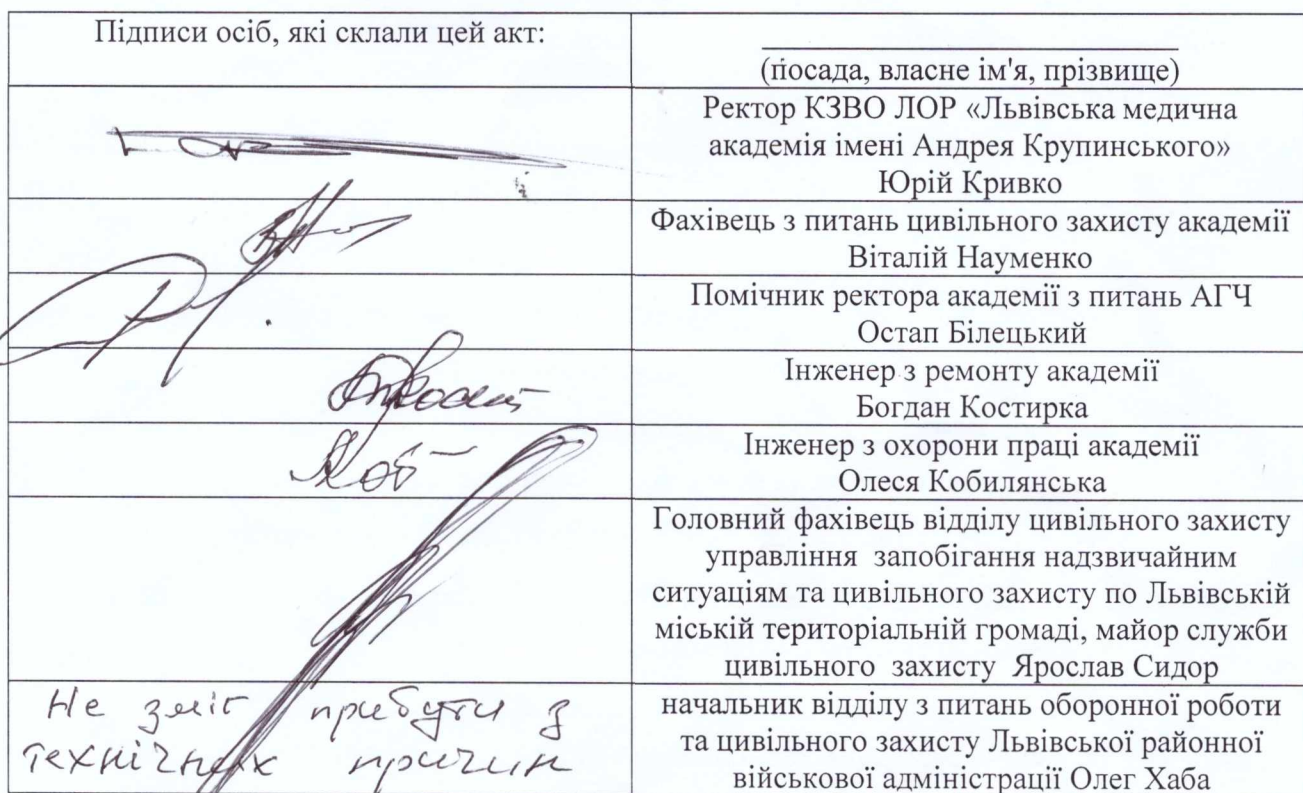 Підписи осіб, які склали цей акт:
(посада, власне ім'я, прізвище)
Ректор КЗВО ЛОР «Львівська медична
академія імені Андрея Крупинського»
Юрій Кривко
Фахівець з питань цивільного захисту академії
Віталій Науменко
Помічник ректора академії з питань АГЧ
Остап Білецький
Інженер з ремонту академії
Богдан Костирка
Інженер з охорони праці академії
Олеся Кобилянська
Головний фахівець відділу цивільного захисту
управління запобігання надзвичайним
ситуаціям та цивільного захисту по Львівській
міській територіальній громаді, майор служби
цивільного захисту Ярослав Сидор
Не зміг прибути з
технічних причин
начальник відділу з питань оборонної роботи
та цивільного захисту Львівської районної
військової адміністрації Олег Хаба